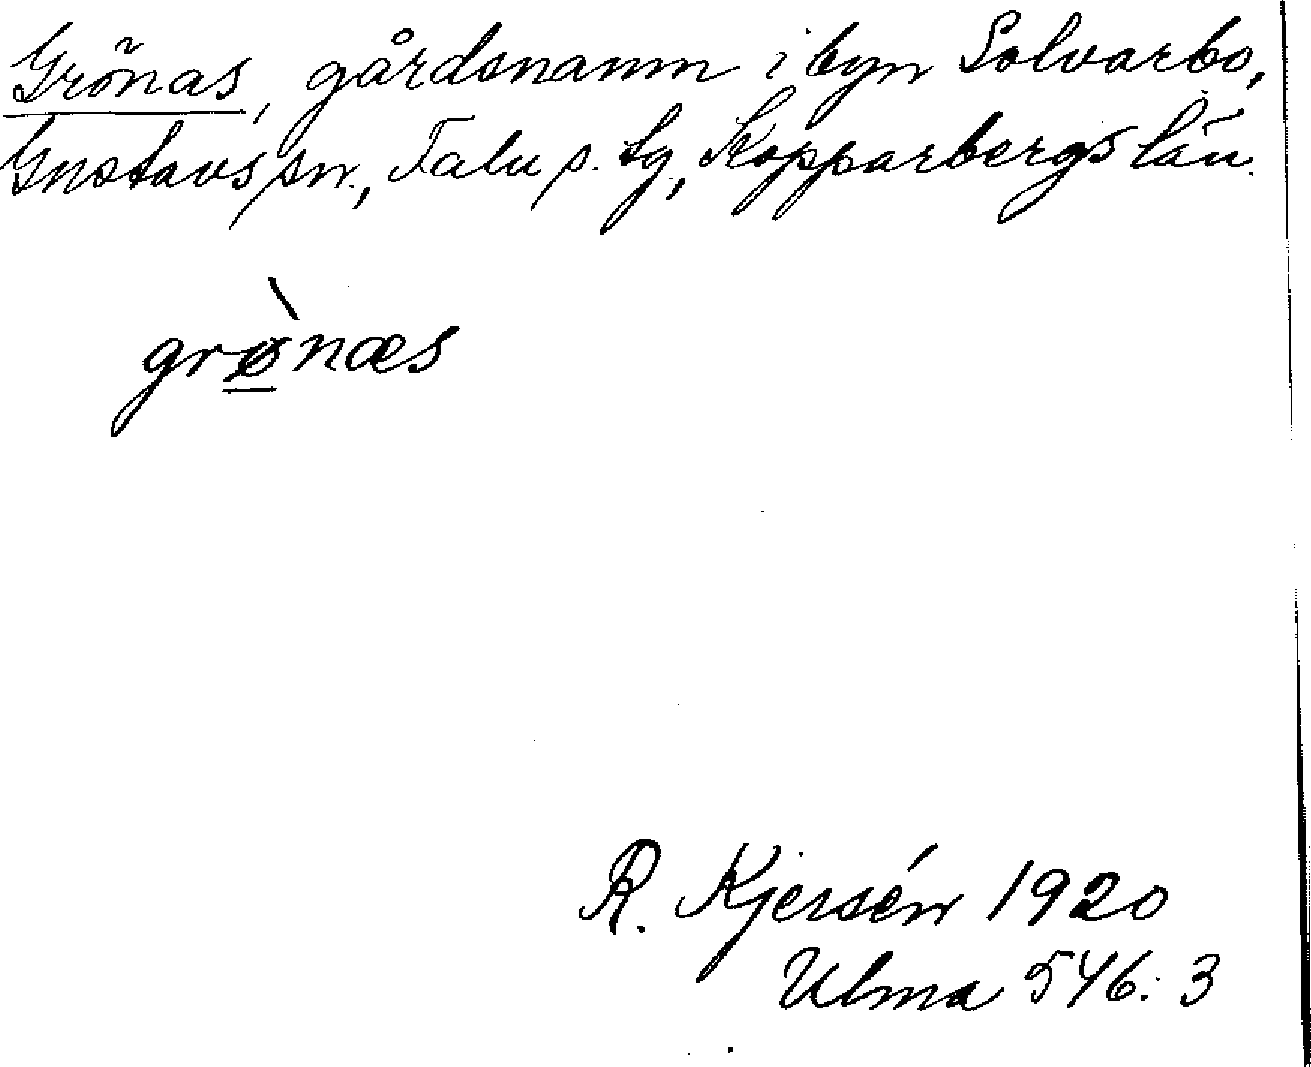 Grönas, gårdsnamn i byn Solvarbo,
Gustavs sn., Falu s. tg, Kopparbergs län.
grø̀næs
R. Kjersén 1920
Ulma 546:3